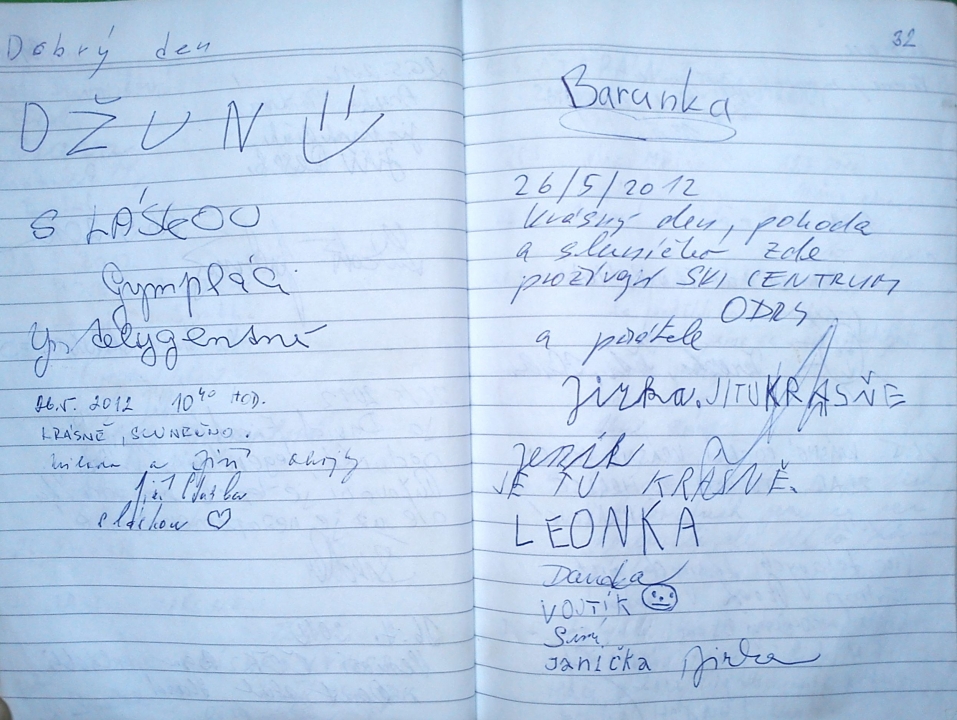 Dobrý den
DŽUN
S LÁSKOU
Gympláci
26.5. 2012 10⁴⁰ HOD.
KRÁSNĚ, SLUNEČNO.
a Jiří
s láskou ♡
32
Barunka
26/5/2012
krásný den, pohoda
a sluníčko zde
prožívají SKI CENTRUM
ODRY
a přátelé
Jirka. JITUKRÁSŇE
Jeník
JE TU KRÁSNĚ.
LEONKA
Danda
VOJTÍK
Simi
Janička Jirka